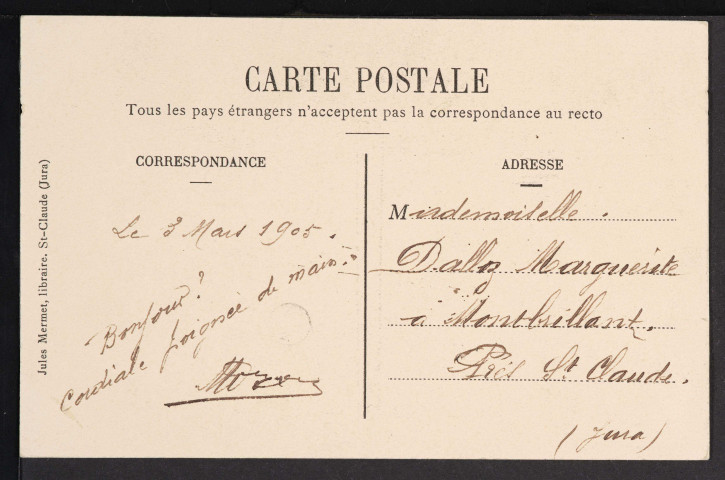 CARTE POSTALE
Tous les pays étrangers n'acceptent pas la correspondance au recto
CORRESPONDANCE
Le 3 Mars 1905.
Bonjour?
Cordiale poignée de main.
ADRESSE
Mademoiselle.
Dalloz Marguerite
à Montbrillant.
Près St Claude.
(Jura)
Jules Mermet, libraire. St-Claude (Jura)